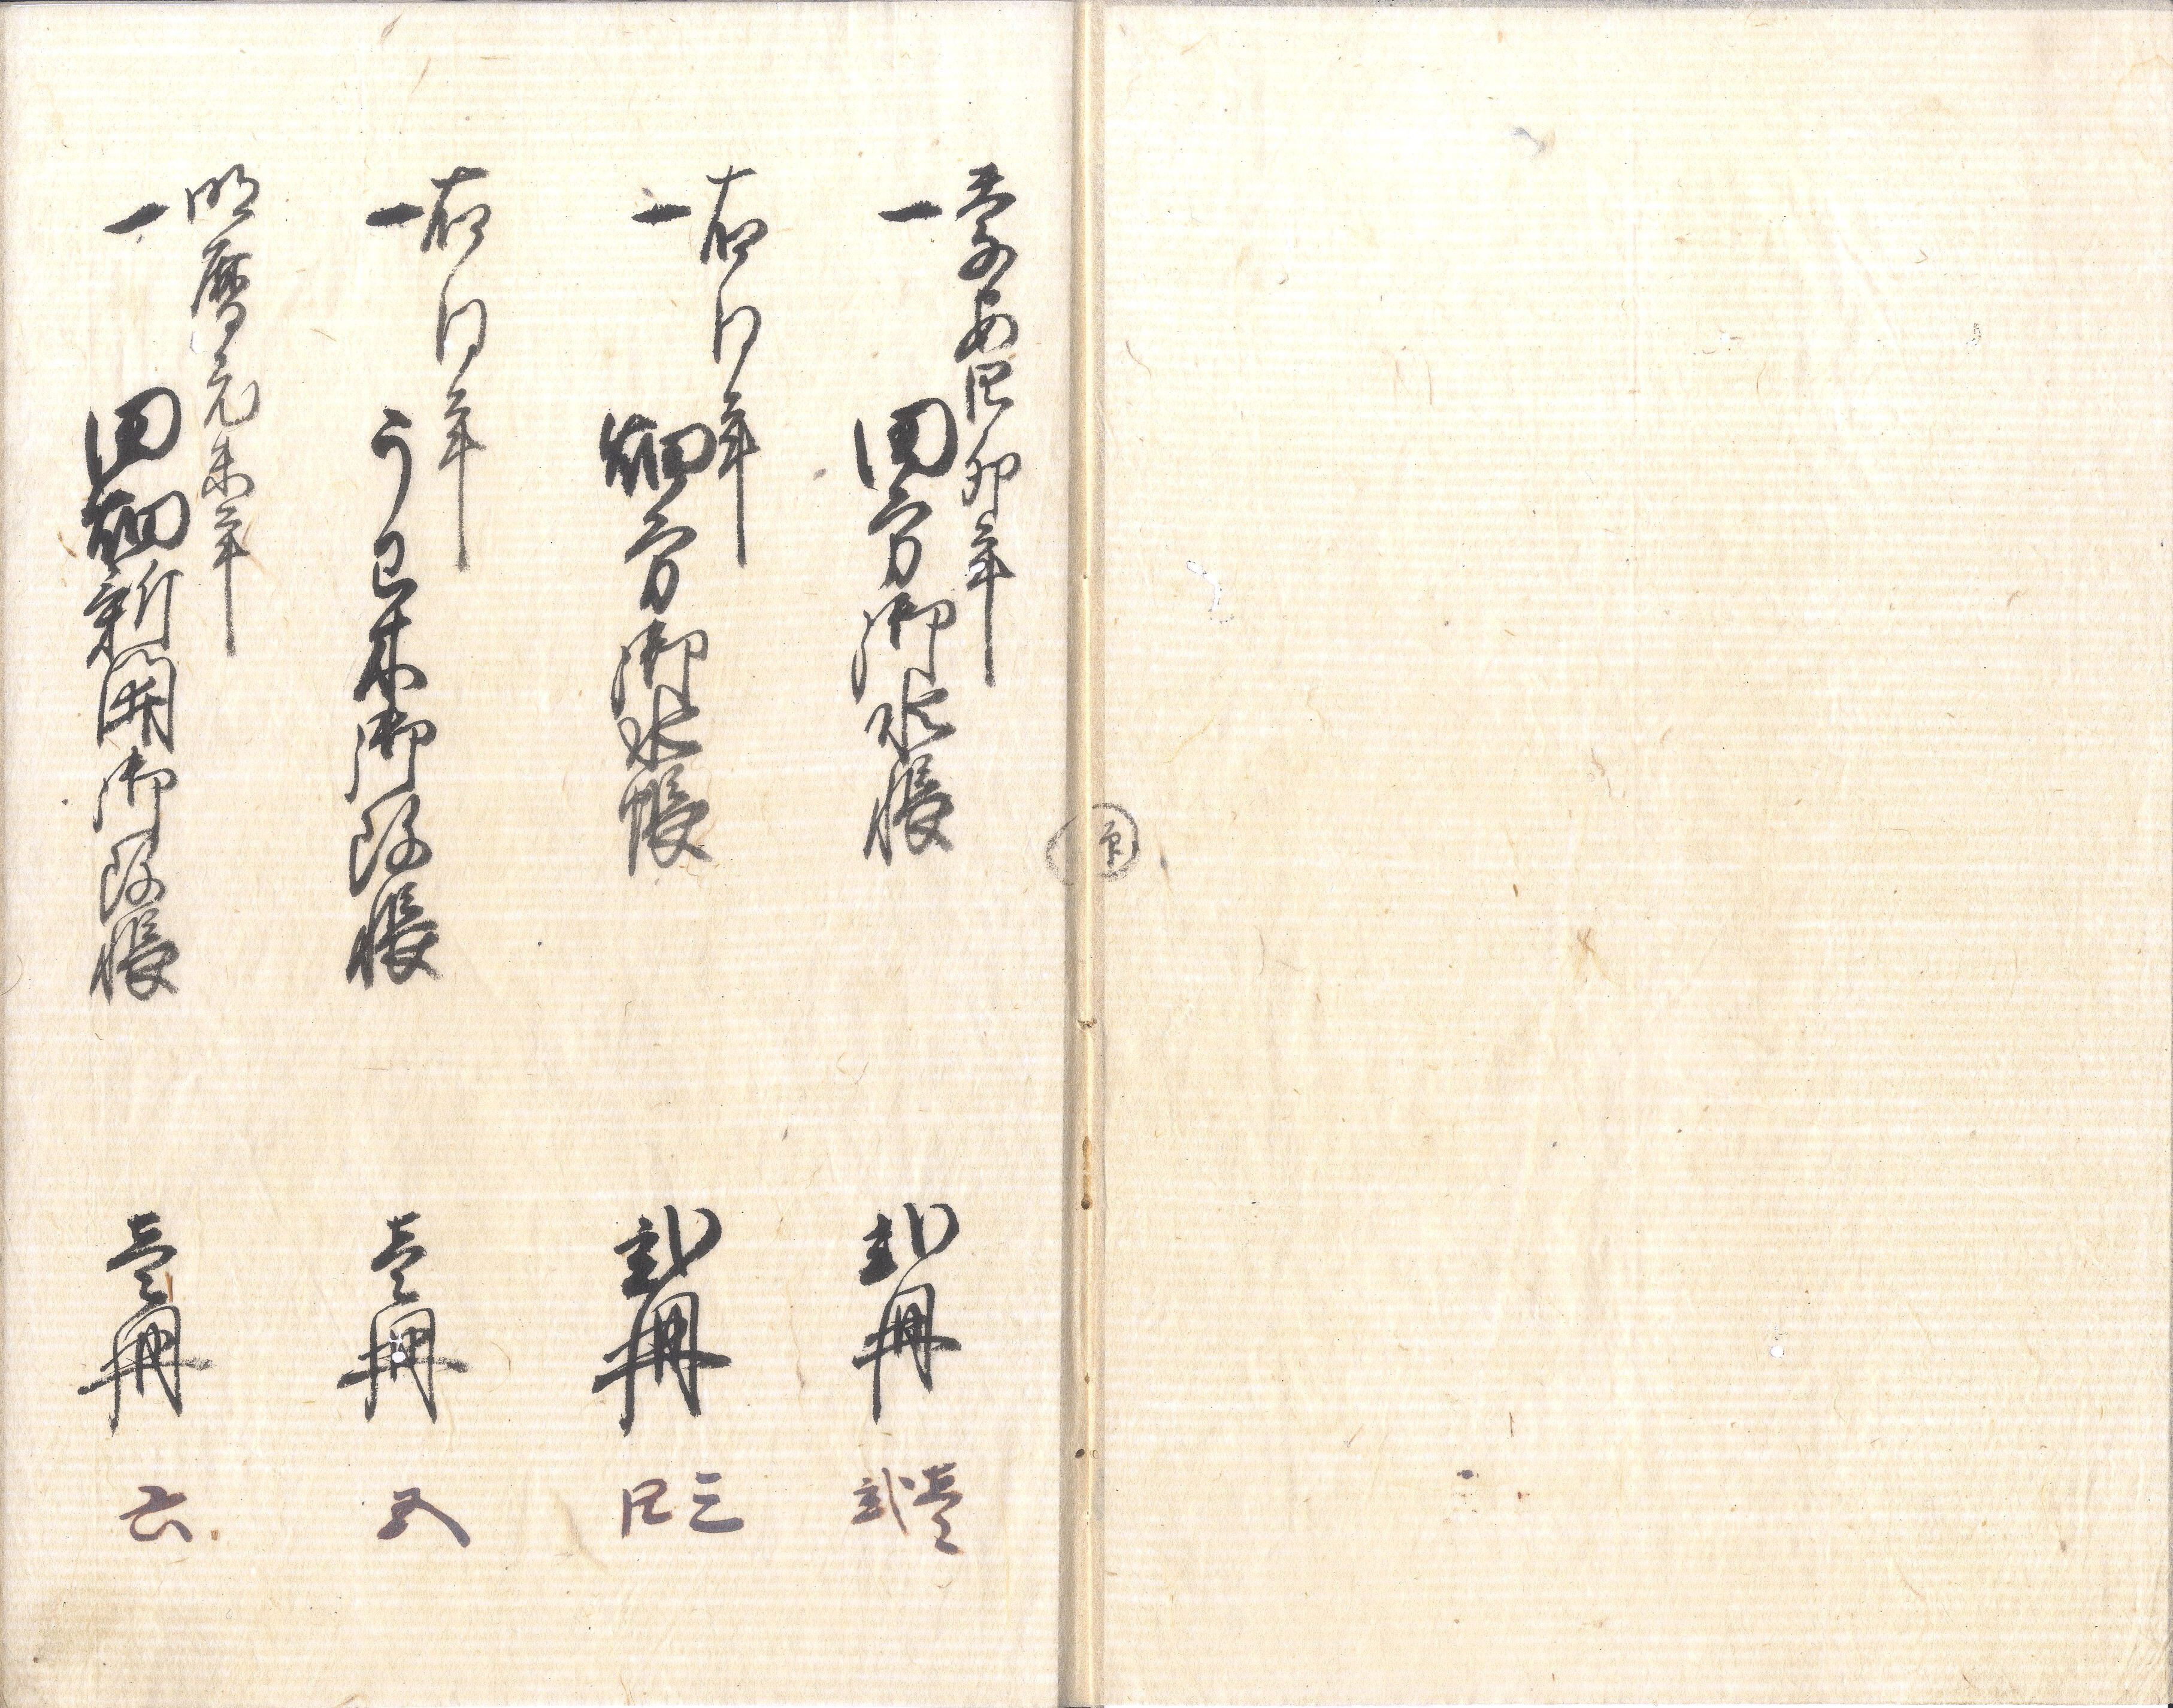 慶安四卯年
一 田方御水帳 弐冊 壱 弐
右同年
一 畑方御水帳 弐冊 三 四
右同年
一 木御改帳 壱冊 五
明暦元未年
一 田畑新開御改帳 壱冊 六